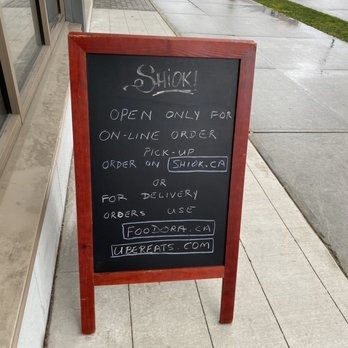 SHIOK!
OPEN ONLY FOR
ON-LINE ORDER
PICK-UP
ORDER ON SHIOK.CA
OR
FOR DELIVERY
ORDERS USE
FOODORA.CA
UBEREATS.COM